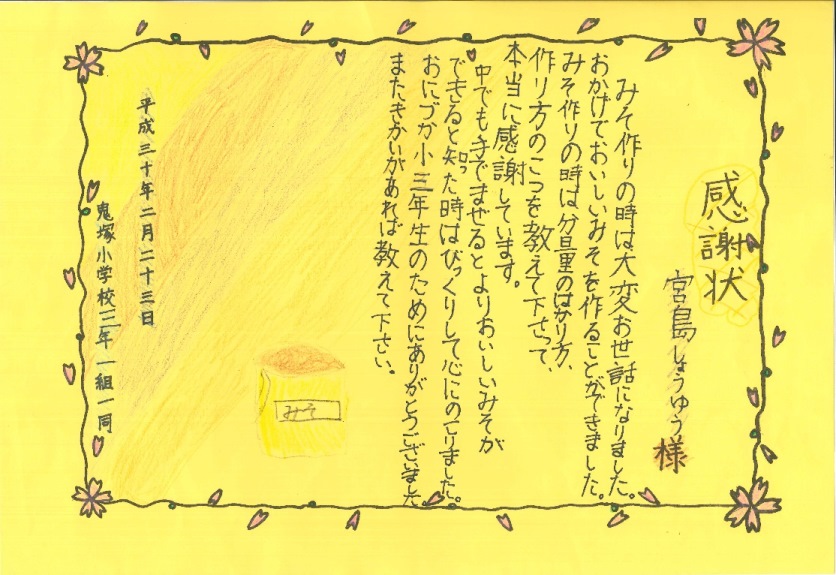 感謝状
宮島しょうゆう様
みそ作りの時は大変お世話になりました。
おかげでおいしいみそを作ることができました。
みそ作りの時は分量のはかり方、
作り方のこつを教えて下さって、
本当に感謝しています。
中でも手でまぜるとよりおいしいみそが
できると知った時はびっくりして心にのこりました。
おにづか小三年生のためにありがとうございました
またきかいがあれば教えて下さい。
みそ
平成三十年二月二十三日
鬼塚小学校三年一組一同